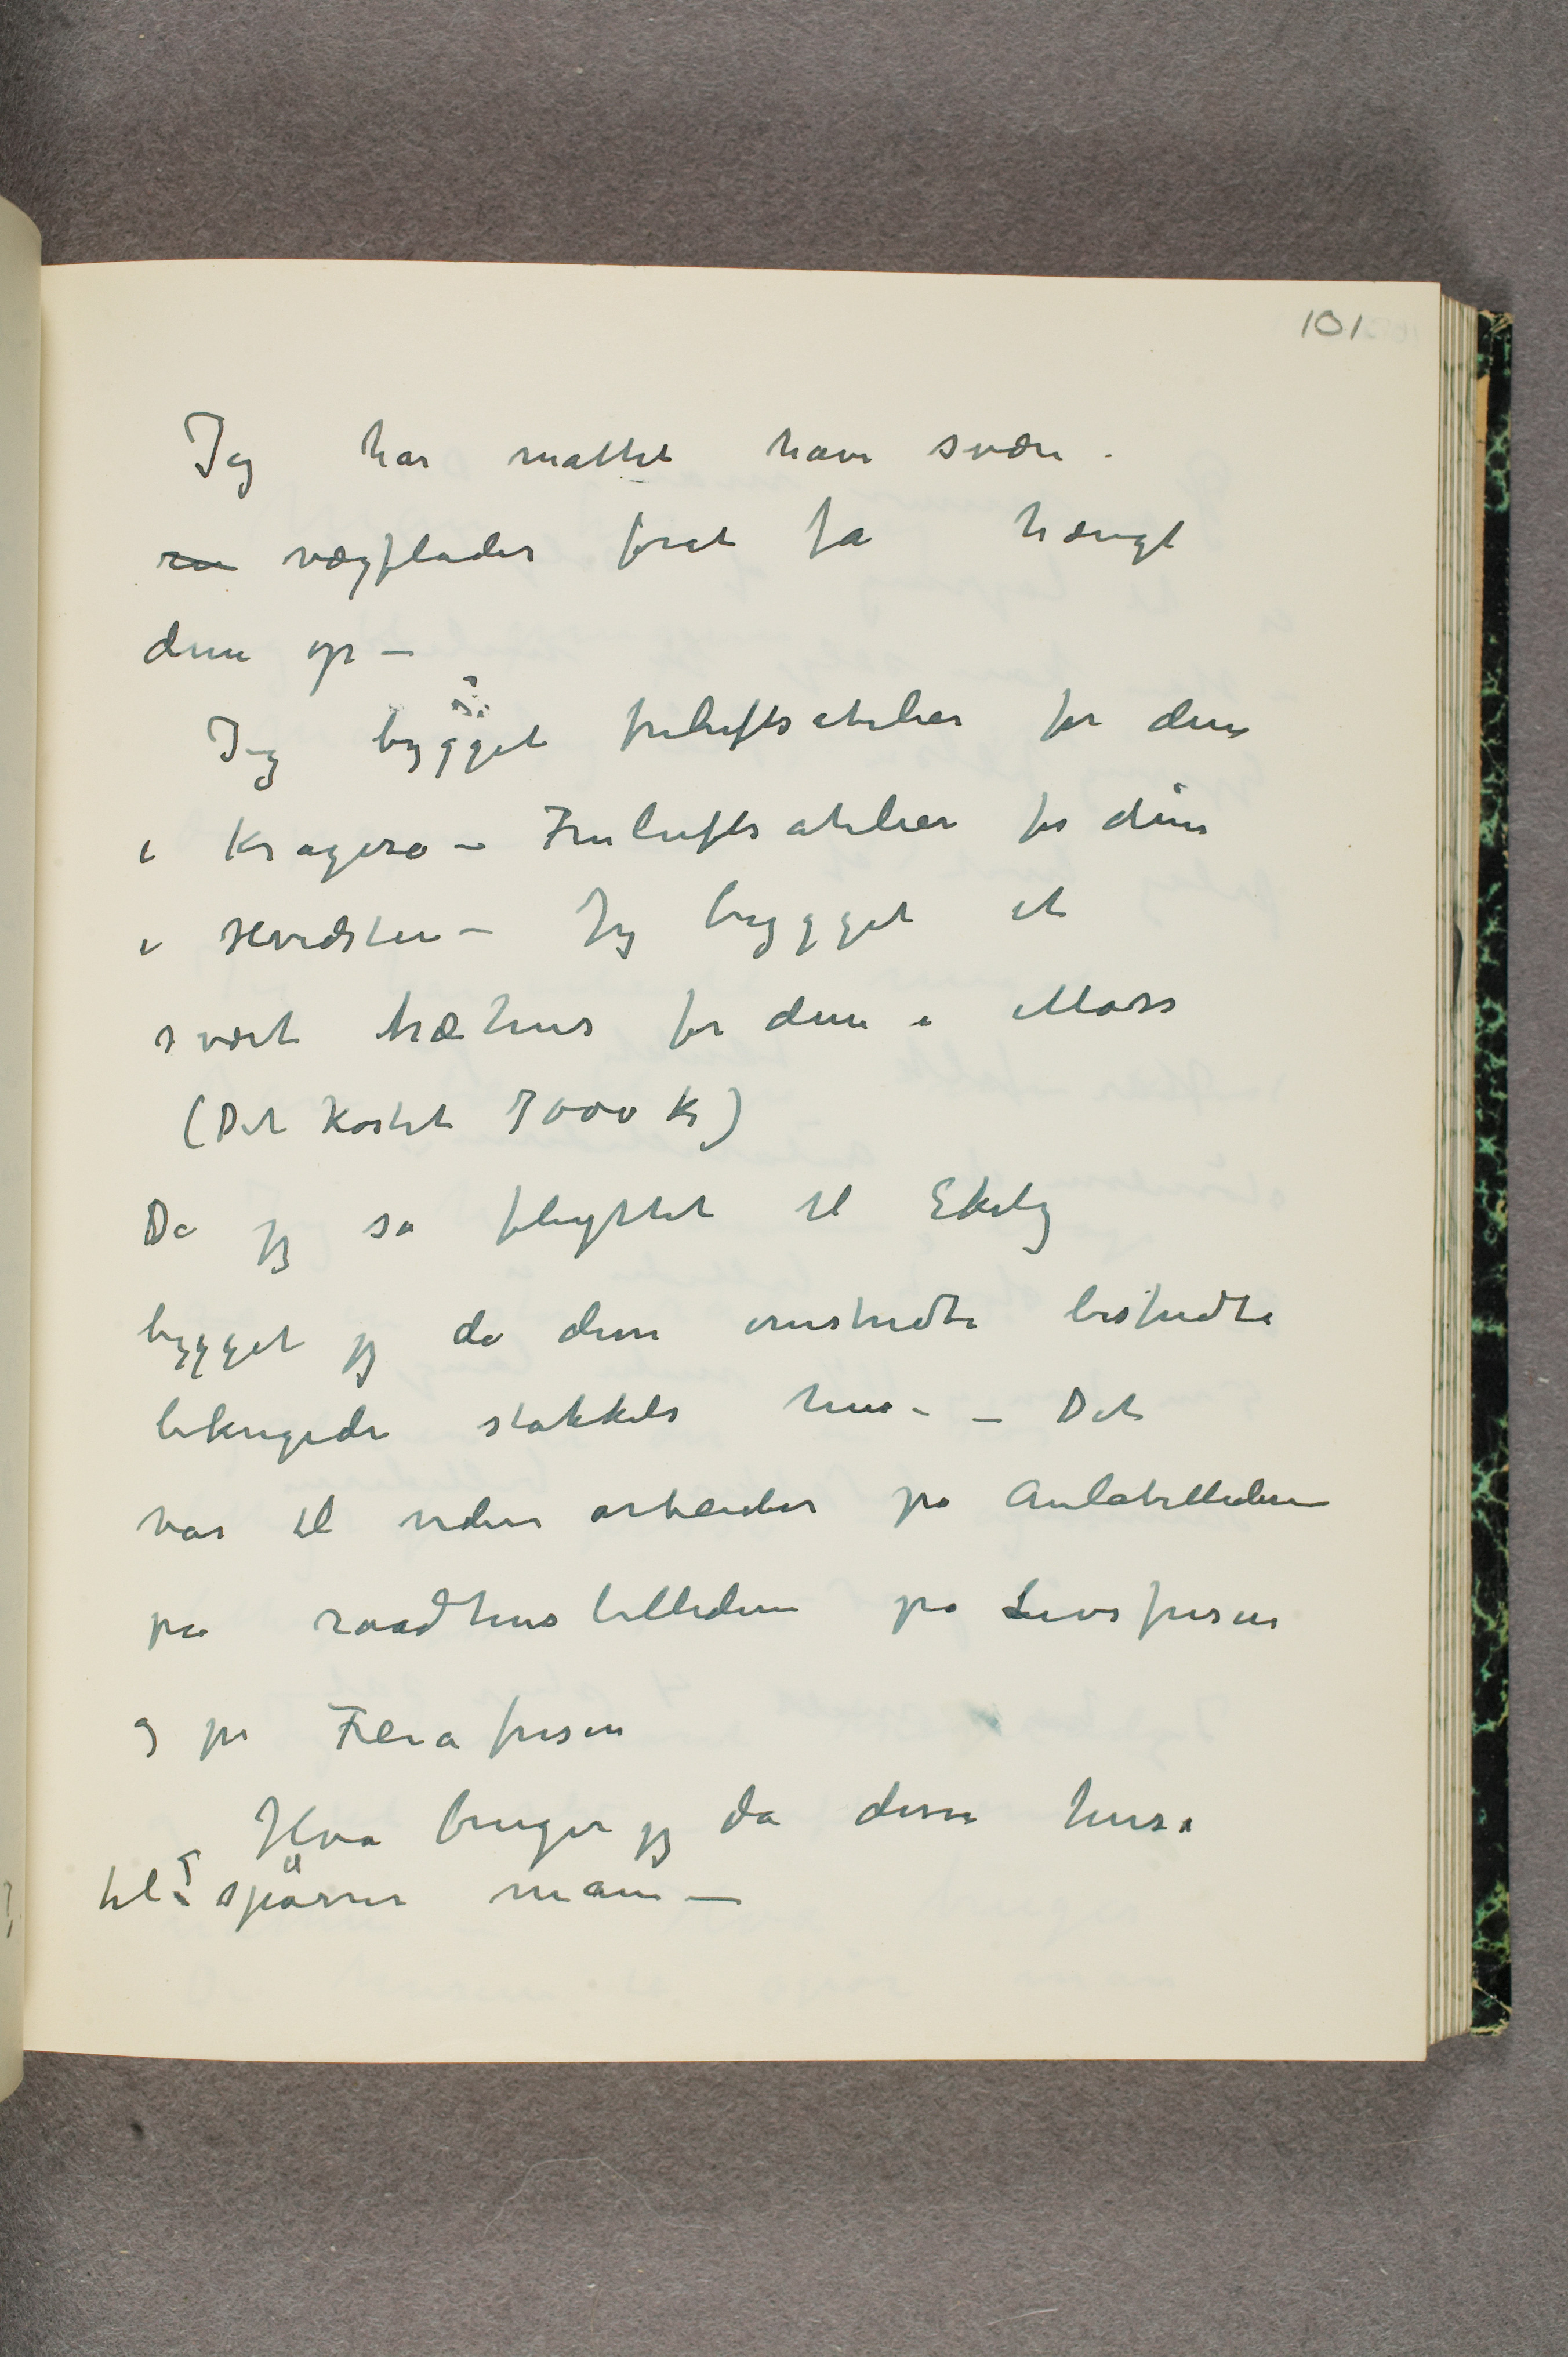 101
Jeg har måttet have svære
vægflader forat få hængt
dem op –
Jeg bygget friluftsatelier for dem
i Kragerø – Friluftsatelier for dem
i Hvidsten – Jeg bygget et
svært træhus for dem i Moss
(Det kostet 7000 kr)
Da jeg så flyttet til Ekely
bygget jeg da dem omstridte
bekrigede stakkels huse – Det
var til videre arbeider på Aulabillederne
på raadhusbilledene på Livsfrisen
og på Freiafrisen
Hva bruger jeg da disse huse
til? spørrer man –